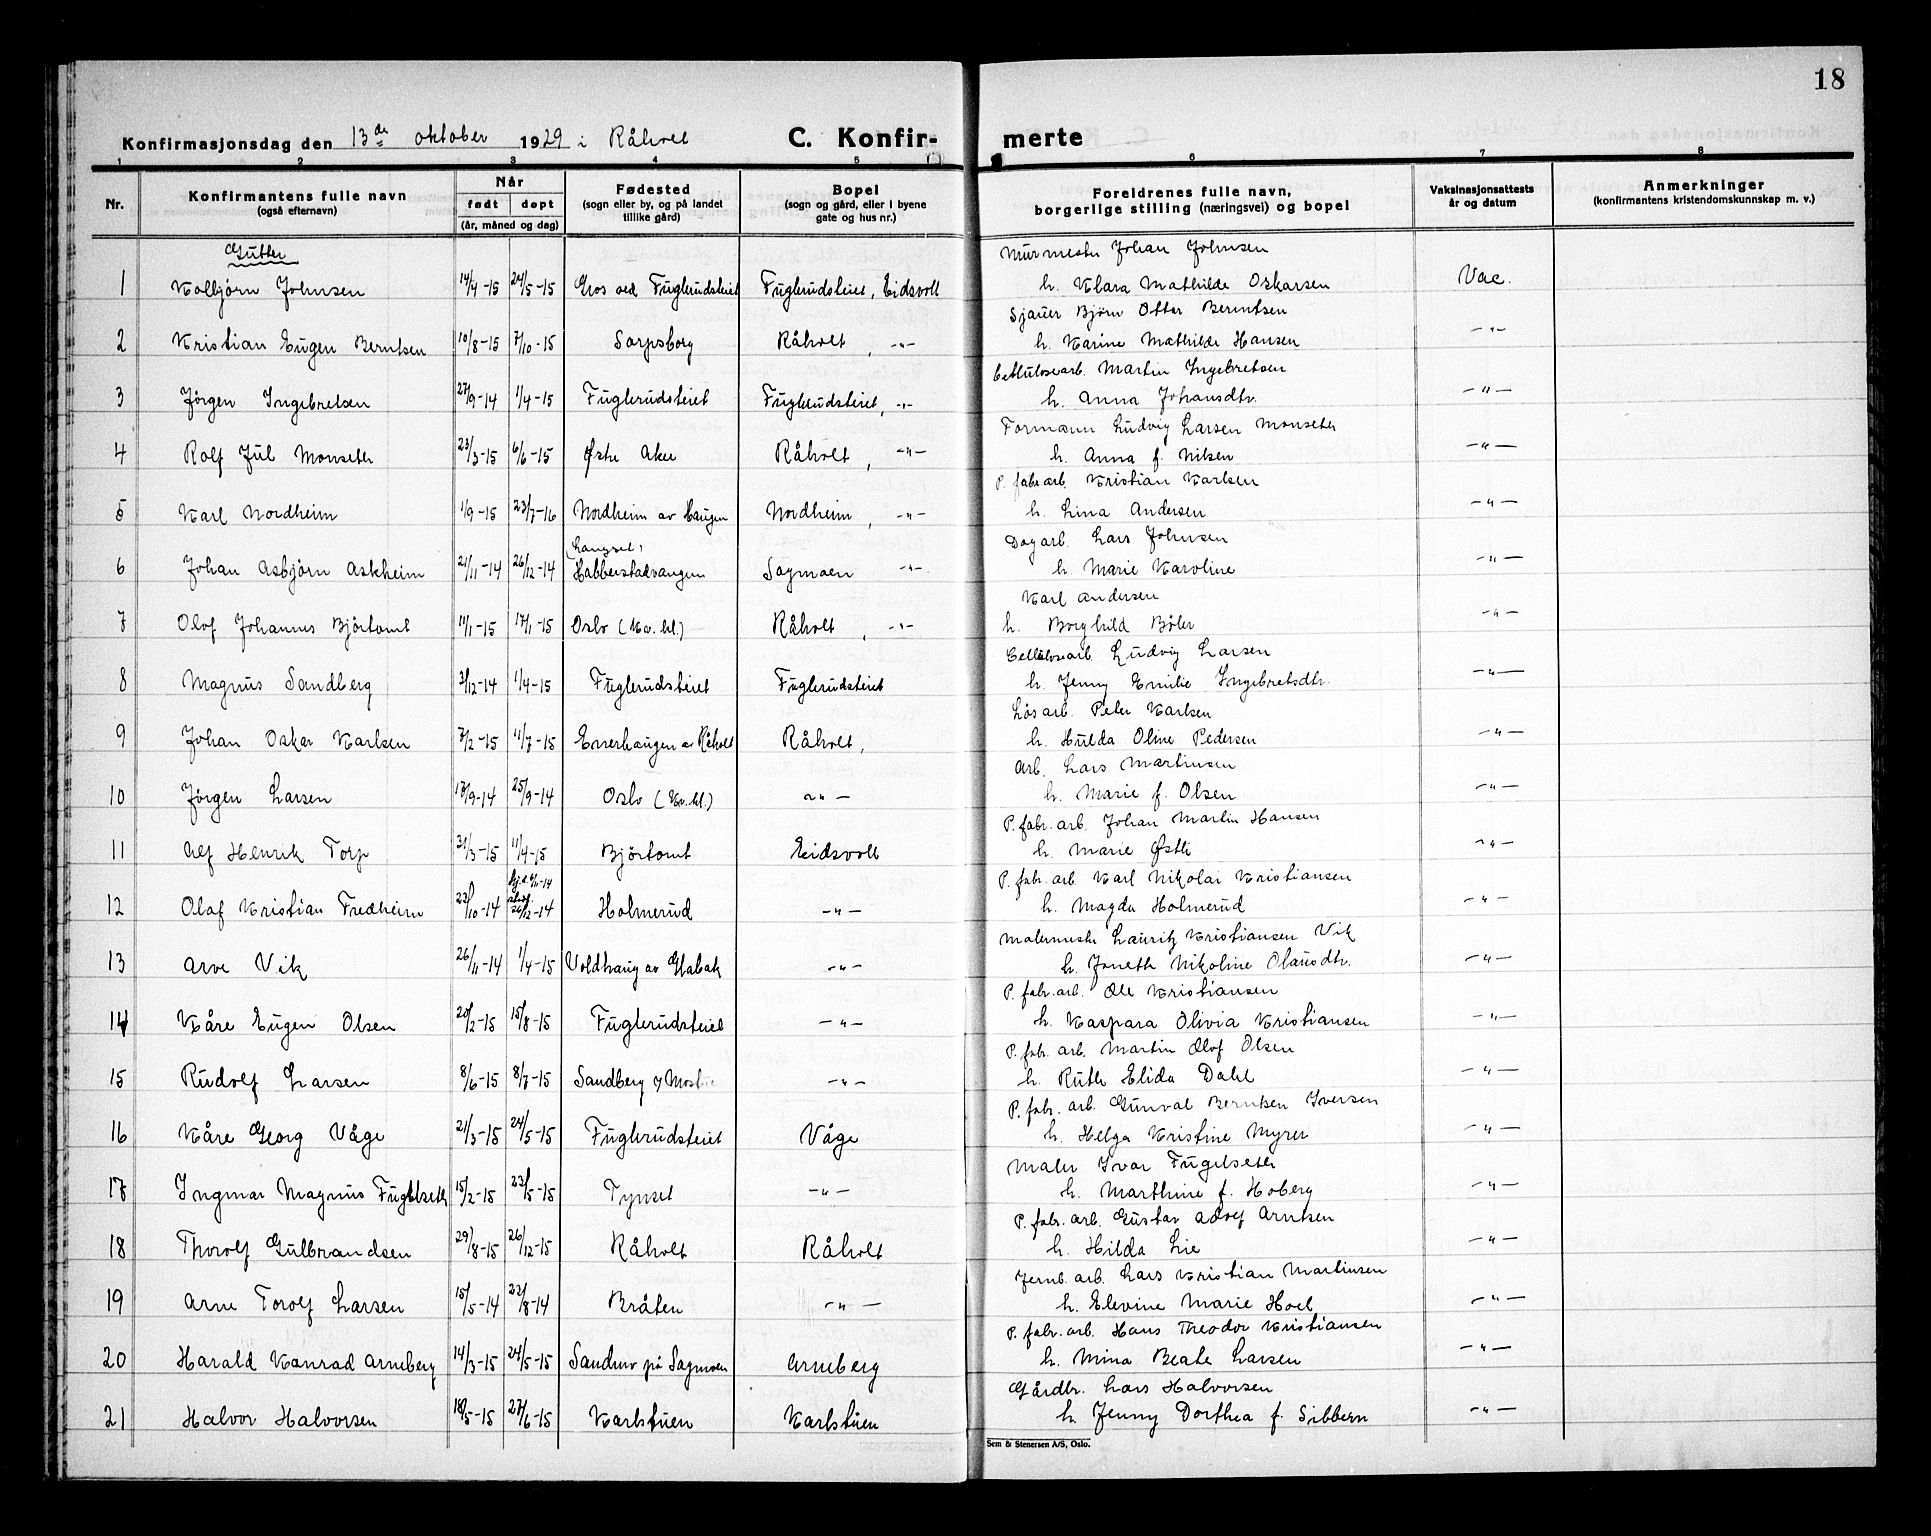 18
Konfirmasjonsdag den 13de oktober 1929 i Råholt C. Konfir- merte
1 2 3 4 5 6 7 8
Nr. Konfirmantens fulle navn (også efternavn) Når født døpt (år, måned og dag) Fødested (sogn eller by, og på landet tillike gård) Bopel (sogn og gård, eller i byene gate og hus nr.) Foreldrenes fulle navn, borgerlige stilling (næringsvei) og bopel Vaksinasjonsattests år og datum Anmerkninger (konfirmantens kristendomskunnskap m. v.)
Gutter
Murmester Johan Johnsen
1 Kolbjørn Johnsen 14/4-15 24/5-15 Gros ved Fuglerudsteiet Fuglerudsteiet, Eidsvoll h. Klara Mathilde Oskarsen Vac.
Sjauer Bjørn Otter Berntsen
2 Kristian Eugen Berntsen 10/8-15 7/10-15 Sarpsborg Råholt, -"- h. Karine Mathilde Hansen -"-
Cellulosearb. Martin Ingebretsen
3 Jørgen Ingebretsen 27/9-14 1/4-15 Fuglerudsteiet Fuglerudsteiet, -"- h. Anna Johansdtr. -"-
Formann Ludvig Larsen Monseter
4 Rolf Jul Monseter 23/3-15 6/6-15 Østre Aker Råholt, -"- h. Anna f. Nilsen -"-
P. fabr.arb. Kristian Karlsen
5 Karl Nordheim 1/9-15 23/7-16 Nordheim av Haugen Nordheim, -"- h. Lina Andersen -"-
Dagarb. Lars Johnsen
6 Johan Asbjørn Askheim 21/11-14 26/12-14 (Langset) Habberstadvangen Sagmoen -"- h. Marie Karoline -"-
Karl Andersen
7 Olof Johannes Bjørtomt 11/1-15 17/1-15 Oslo (Kv.kl.) Råholt, -"- h. Borghild Bøler -"-
Cellulosearb. Ludvig Larsen
8 Magnus Sandberg 3/12-14 1/4-15 Fuglerudsteiet Fuglerudsteiet h. Jenny Emilie Ingebretsdtr. -"-
Løsarb. Peter Karlsen
9 Johan Oskar Karlsen 7/2-15 11/7-15 Enerhaugen av Råholt Råholt, h. Hulda Oline Pedersen -"-
Arb. Lars Martinsen
10 Jørgen Larsen 17/9-14 25/9-14 Oslo (Kv.kl.) -"- h. Marie f. Olsen -"-
P. fabr. arb. Johan Martin Hansen
11 Alf Henrik Torp 31/3-15 11/4-15 Bjørtomt Eidsvoll h. Marie Østli -"-
P. fabr. arb. Karl Nikolai Kristiansen
12 Olaf Kristian Fredheim 23/10-14 26/12-14 Holmerud -"- h. Magda Holmerud -"-
Malermester Lauritz Kristiansen Vik
13 Arve Vik 26/11-14 1/4-15 Voldhaug av Habak -"- h. Janeth Nikoline Olausdtr. -"-
P. fabr.arb. Ole Kristiansen
14 Kåre Eugen Olsen 20/2-15 15/8-15 Fuglerudsteiet -"- h. Kaspara Olivia Kristiansen -"-
P. fabr. arb. Martin Olof Olsen
15 Rudolf Larsen 8/6-15 8/7-15 Sandberg -"- h. Ruth Elida Dahl -"-
P. fabr. arb. Gunval Berntsen Iversen
16 Kåre Georg Våge 21/3-15 24/5-15 Fuglerudsteiet Våge h. Helga Kristine Myrer -"-
Maler Ivar Fugelseter
17 Ingmar Magnus Fugelseter 15/2-15 23/5-15 Tynset -"- h. Marthine f. Hoberg -"-
P. fabr. arb. Gustav Adolf Arntsen
18 Thorolf Gulbrandsen 29/8-15 26/12-15 Råholt Råholt h. Hilda Lie -"-
Jernb. arb. Lars Kristian Martinsen
19 Arne Torolf Larsen 15/5-14 22/8-14 Bråten -"- h. Elevine Marie Hoel -"-
P. fabr.arb. Hans Theodor Kristiansen
20 Harald Konrad Arneberg 14/3-15 24/5-15 Sandmo på Sagmoen Arneberg h. Mina Beate Larsen -"-
Gårdbr. Lars Halvorsen
21 Halvor Halvorsen 18/5-15 27/6-15 Karlstuen Karlstuen h. Jenny Dorthea f. Sibbern -"-
Sem & Stenersen A/S, Oslo.